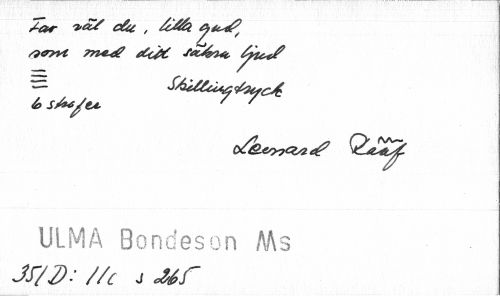 Far väl du, lilla gud,
som med ditt säkra ljud
Skillingtryck
6 strofer
Leonard Rääf
ULMA Bondeson Ms
351D: 11c s 265